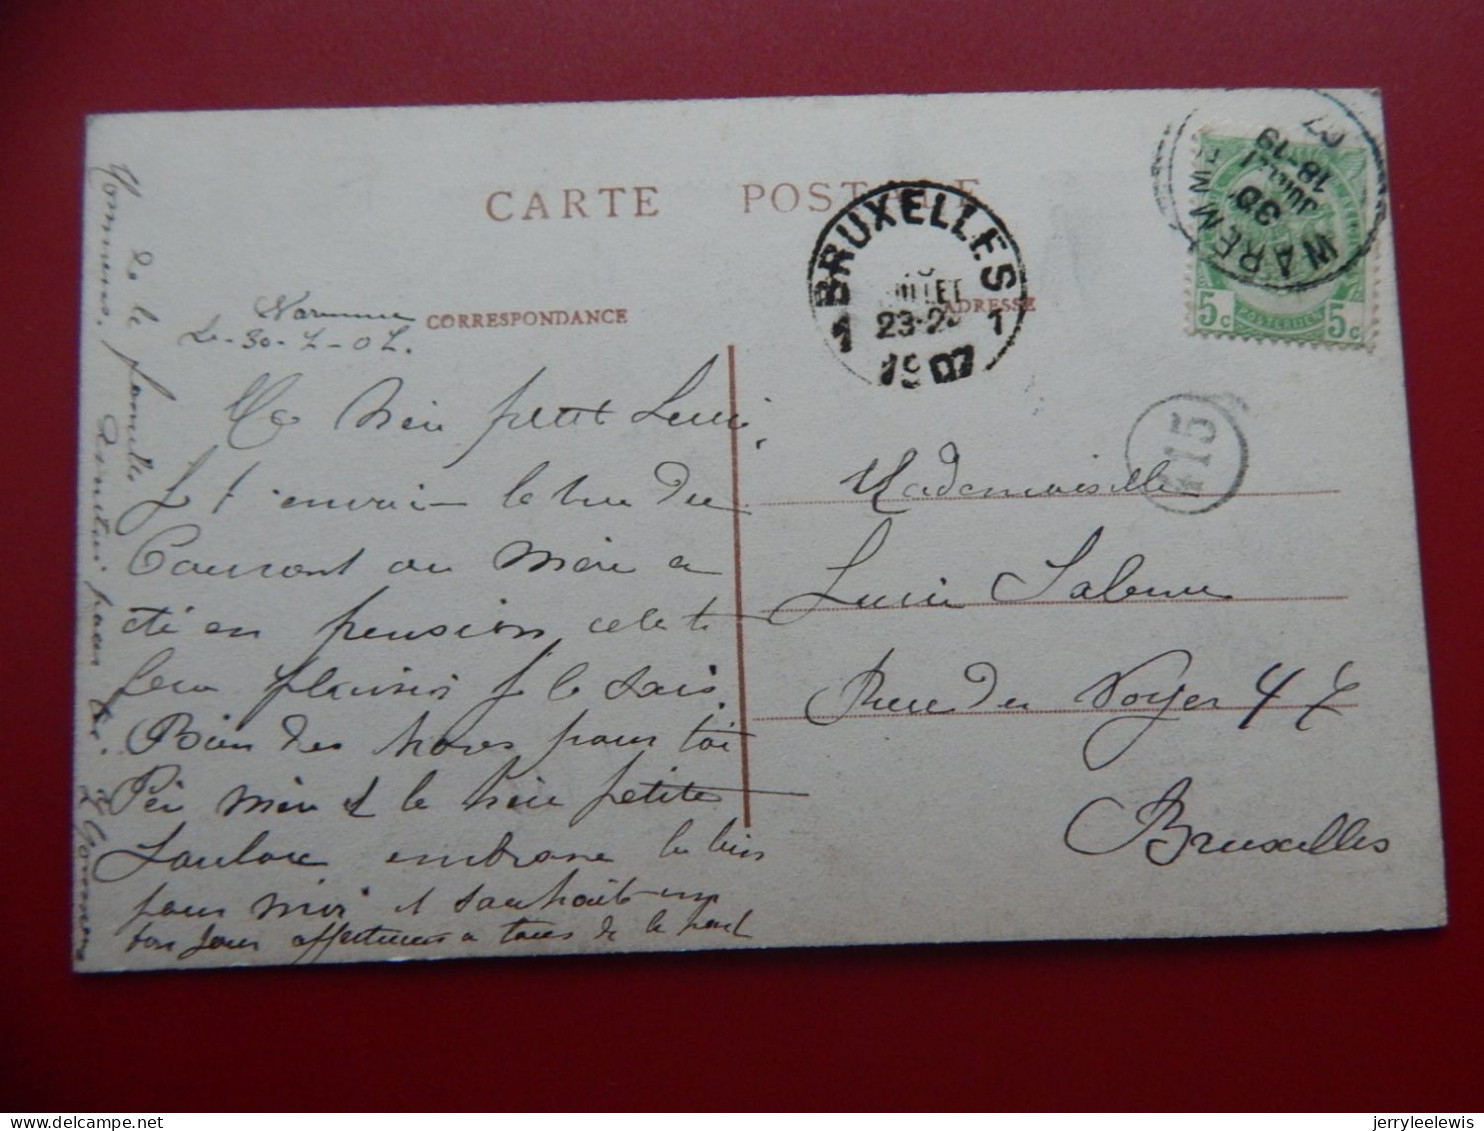 CARTE POSTALE
CORRESPONDANCE
ADRESSE
BRUXELLES
JUILLET
23-2
1 1
1907
WAREMME
30
JUILLET
18-19
07
5c POSTERIJEN 5c
115
Le 30-7-07.
petit Lucie,
Je t'envoie la vue du
Couvent ou Mère a
été en pension, cela te
fera plaisir je le sais.
Bien des choses pour toi
Père mère et la petite
embrasse la bien
pour moi et souhaite un
bon jour affectueux a tous de la part
de la famille
Mademoiselle
Lucie
Rue du Noyer 47
Bruxelles
jerryleelewis